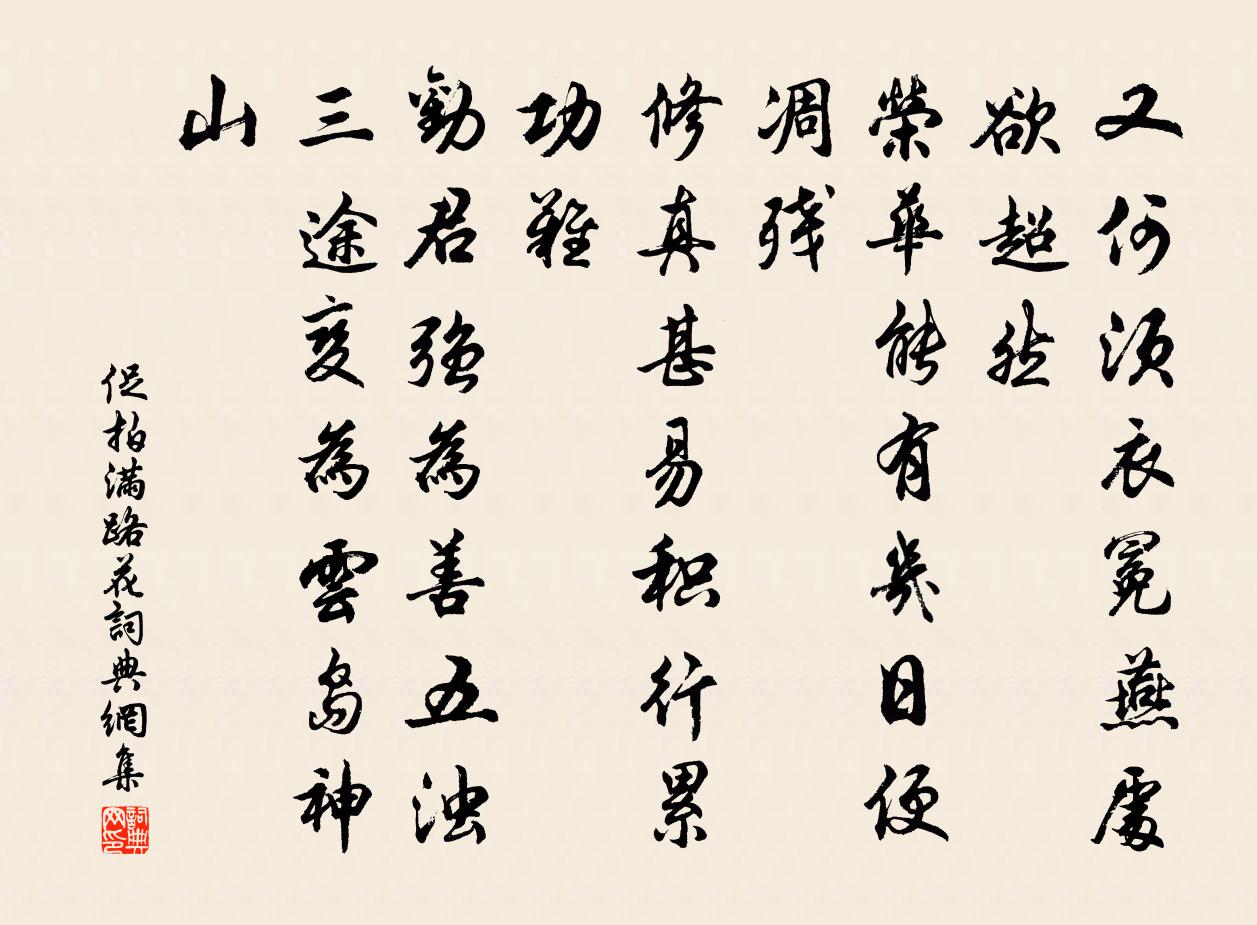 又何須衣冕燕處
欲超然
榮華能有幾日便
凋残
修真甚易积行累
功難
勸君強為善五浊
三途变為雲島神
山
促拍满路花詞典網集
詞典
网印